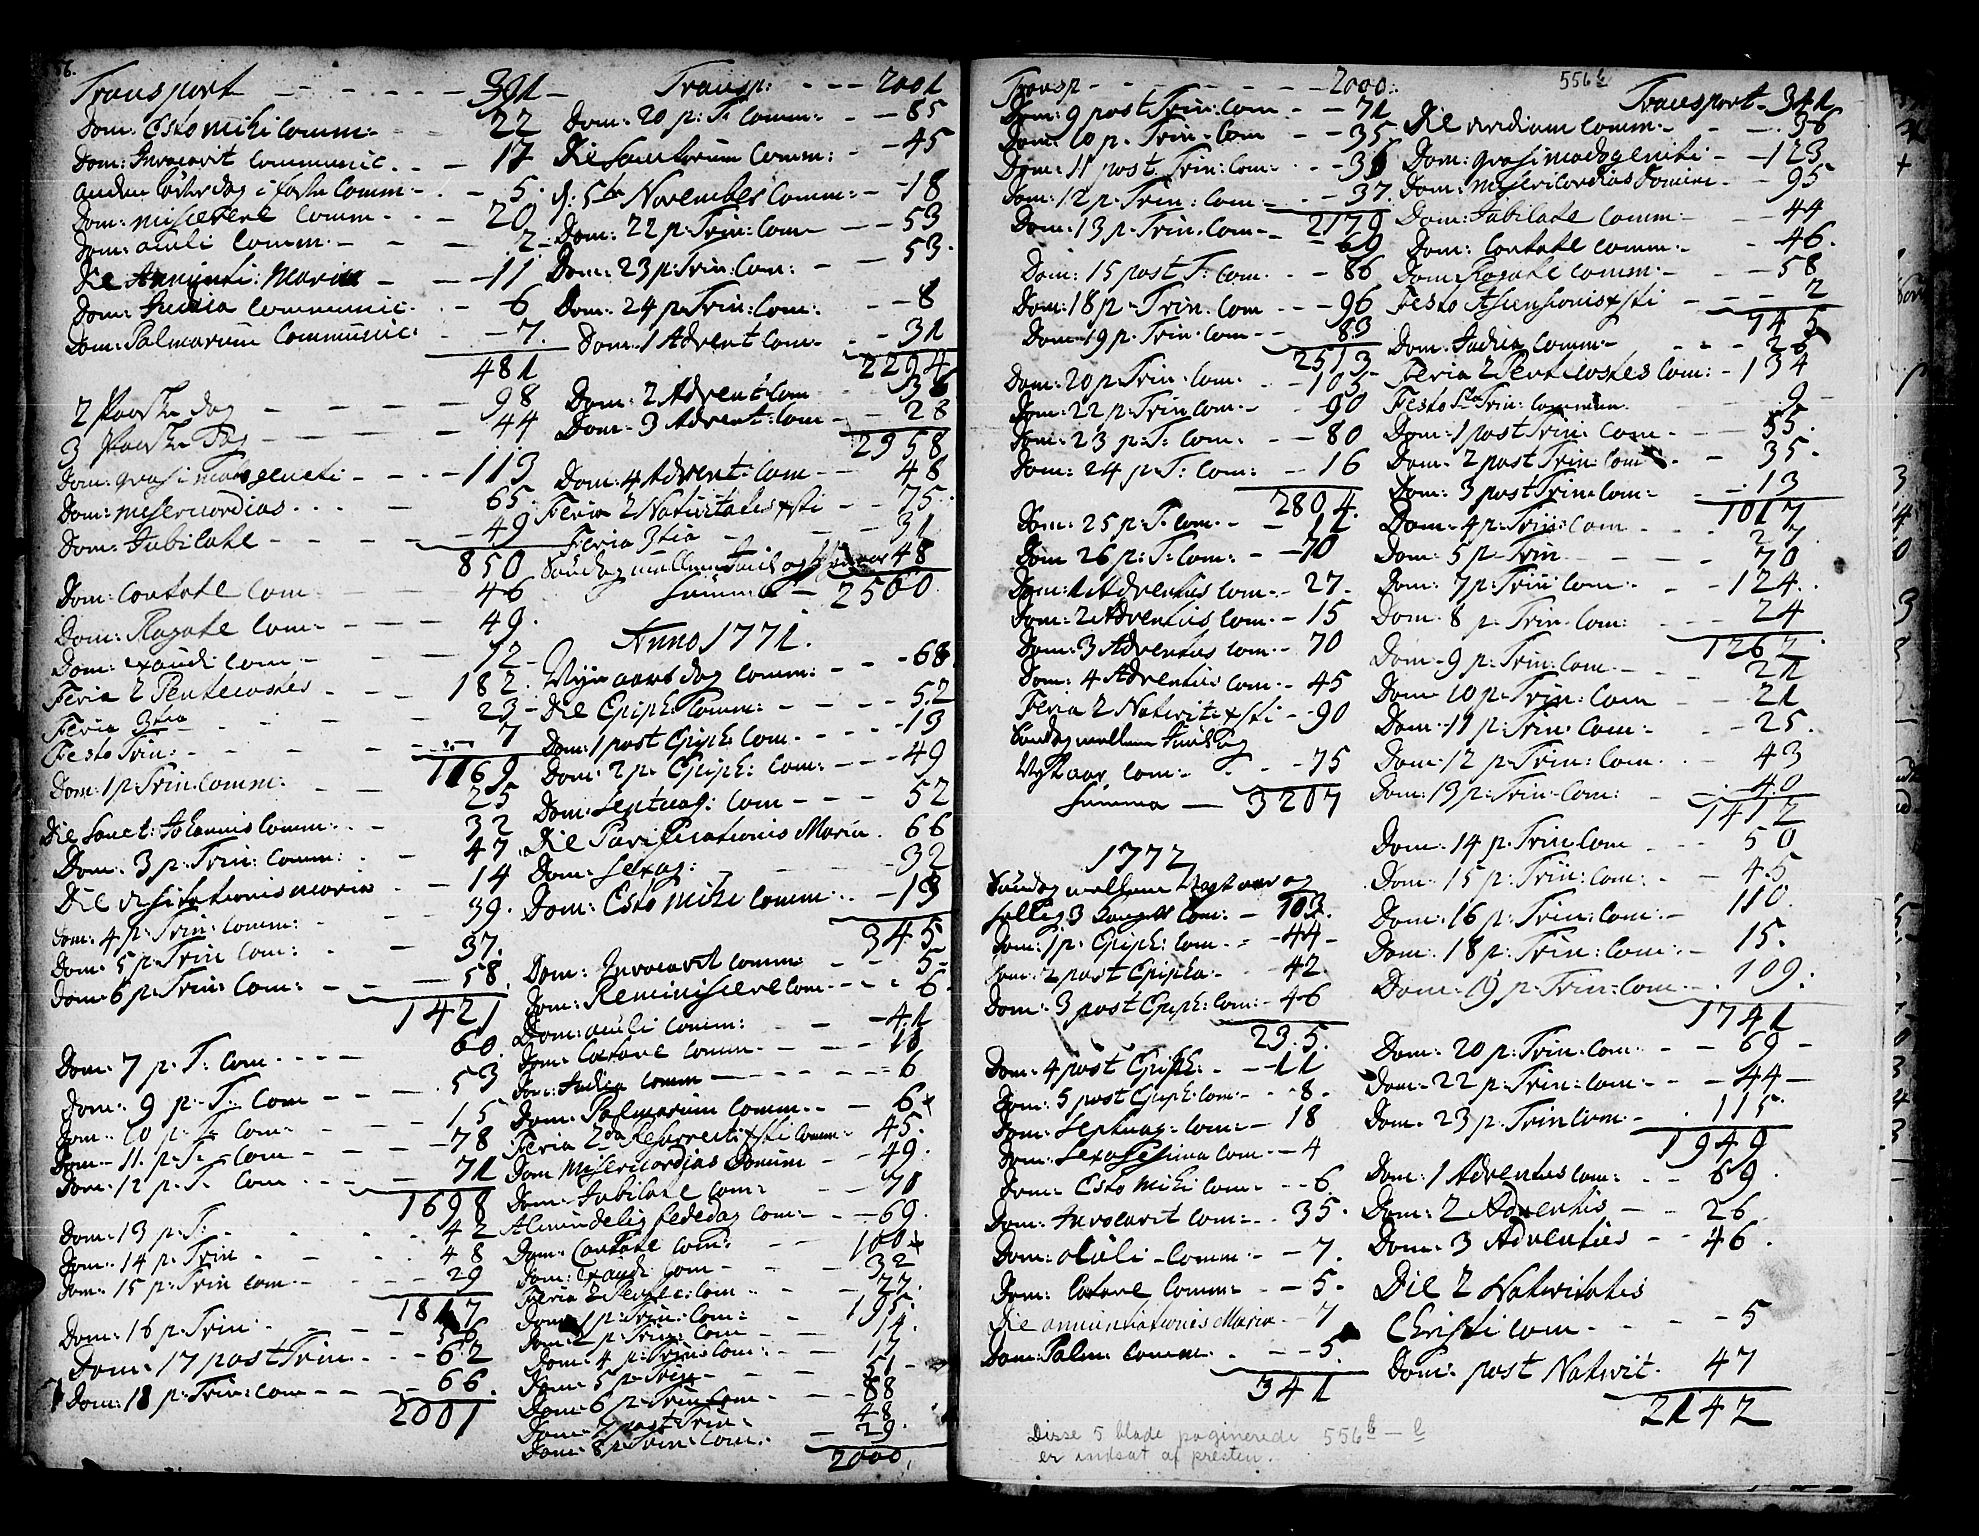 556.
Transport - - - - - 391
Dom: Esto mihi Comm: - 22
Dom: Invocavit Communic. - 17
anden i faste Comm - 5.
Dom: miserere Comm - 20
Dom: oculi Comm. - 2
Die Annunti: Mariæ - 11
Dom: Judica Communic. - 6
Dom: Palmarum Communic: - 7.
481
2 Paaske dag - - - 98
3 Paaske Dag - - - 44
Dom: - 113
Dom: misericordias - 65
Dom: Jubilate - 49
850
Dom: Cantate Com - 46
Dom: Rogate Com: - 49.
Dom: exaudi Com - 72
Feria 2 Pentecostes - 182.
Feria 3tia - 23
Festo Trin: - 7
1169
Dom: 1 p: Trin: Comm. - 25
Die Sanct: Johannis Comm: - 32
Dom: 3 p: Trin: Comm: - 47
Die visitationis maria - 14
Dom: 4 p: Trin: Comm: - 39.
Dom: 5 p: Trin Com: - 37.
Dom: 6 p: Trin: Com: - 58.
1421
Dom: 7 p: T: Com - 60.
Dom: 9 p: T: Com - 53
Dom: 10 p: T: Com - 15
Dom: 11. p: T: Com - 78
Dom: 12 p: T: Com - 71
1698
Dom: 13 p: T: - 42
Dom: 14 p: Trin - 48
Dom: 15 p: Trin Com - 29
1817
Dom: 16 p: Trin: - 56
Dom: 17 post Trin - 62
Dom: 18 p: Trin: Com - 66.
2001
Transp: - - - 2001
Dom: 20 p: T: Comm: - 85
Die Sanctorum Comm: - 45
d: 5te November Comm: - 18
Dom: 22 p: Trin: Com - 53
Dom: 23 p: Trin: Com: - 53.
Dom: 24 p: Trin: Com: - 8
Dom: 1 Advent Com. - 31
2294
Dom: 2 Advent Com - 36
Dom: 3 Advent: Com - 28
2958
Dom: 4 Advent: Com - 48
Feria 2 Nativitatis xsti - 75.
Feria 3tia - 31
Søndag mellem Juul og 48
Summa - 2560
Anno 1771.
Nyeaars dag Comm: - 68
Die Epiph: Comm: - 52
Dom: 1 post Epiph: Com. - 13
Dom: 2 p: Epiph: Com: - 49
Dom: Septuag: Com - 52
Die Purificationis Mariæ. 66
Dom: Sexag: - 32
Dom: Esto mihi Comm: - 13
345
Dom: Invocavit Comm: - 5
Dom: Reminiscere Com - 6
Dom: oculi Comm: - 41
Dom: Lætare Comm - 10
Dom: Judica Comm - 6
Dom: Palmarum Comm: - 6
Feria 2da Resurrecti: xsti Comm: 45.
Dom: Misericordias Domini - 49.
Dom: Jubilate Com: - 71
Almindelig Bededag Com: - 69.
Dom: Cantate Com: - 100
Dom: Exaudi Com - 32
Feria 2 Pentec: Com - 77.
Dom: 1 p: Trin: Com: - 195.
Dom: 2 p: Trin: Com - 14.
Dom: 4 p: Trin: Com: - 17
Dom: 5 p: Trin - 51
Dom: 6 p: Trin: Com - 88
Dom: 7 post Trin - 48
Dom: 8 p: Trin: Com. - 29
2000.
Transp - - - 2000.
Dom: 9 post Trin: Com - 71
Dom: 10 p: Trin: Com - 35
Dom: 11 post Trin: Com - 36
Dom: 12 p: Trin: Com - 37.
2179
Dom: 13 p: Trin: Com - 69
Dom: 15 post T: Com - 86
Dom: 18 p: Trin: Com - 96
Dom: 19 p: Trin: Com - 83
2513
Dom: 20 p: Trin: Com: - 105
Dom: 22 p: Trin: Com: - 90
Dom: 23 p: T: Com: - 80
Dom: 24 p: T: Com: - 16
2804.
Dom: 25 p: T: Com: - 11
Dom 26 p: T: Com: - 70
Dom: 1 Adventus Com: - 27.
Dom: 2 Adventus Com: - 15
Dom: 3 Adventus Com - 70
Dom: 4 Adventus Com: - 45
Feria 2 Nativit: xsti - 90
Søndag mellem Juul og
Nytaar Com: - 75
Summa - 3207
1772
Søndag mellem Nytaar og
hellig 3 Konger Com: - 103.
Dom: 1 p: Epiph: Com - 44
Dom: 2 post Epipha - 42
Dom: 3 post Epiph: Com: - 46
235.
Dom: 4 post Epiph: - 11
Dom: 5 post Epiph: Com: - 8.
Dom: Septuag: Com: - 18
Dom: Sexagesima Com - 4
Dom: Esto mihi Com: - 6.
Dom: Invocavit Com: - 35.
Dom: oculi Comm: - 7.
Dom: Lætare Comm: - 5.
Die annuntiationis Maria - 7
Dom: Palm: Comm. - 5.
341
Disse 5 blade paginerede 556 b – l
er indsat af presten.
556 b
Transport - 341
Die viridium Comm: - 36
Dom: quasimodogeniti - 123.
Dom: misericordias Domini - 95
Dom: Jubilate Comm: - 44
Dom: Cantate Comm: - 46.
Dom: Rogate Comm: - 58
Festo Ascensionis xsti - 2
745
Dom: Judica Comm: - 26
Feria 2 Pentecostes Com: - 134
Festo Trin: Comm - 9
Dom: 1 post Trin: Com - 55.
Dom: 2 post Trin: Com - 35.
Dom: 3 post Trin: Com: - 13
1017
Dom: 4 p: Trin: Com - 27
Dom: 5 p Trin - 70
Dom: 7 p: Trin: Com: - 124.
Dom: 8 p: Trin: Com: - 24
1262
Dom: 9 p: Trin: Com - 21
Dom: 10 p: Trin: Com - 21
Dom: 11 p: Trin: Com: - 25.
Dom: 12 p: Trin: Com. - 43
Dom: 13 p: Trin: Com: - 40
1412
Dom: 14 p: Trin: Com - 50
Dom: 15 p: Trin: Com: - 45
Dom: 16 p: Trin: Com: - 110.
Dom: 18 p: Trin: Com: - 15.
Dom: 19 p: Trin: Com - 109.
1741
Dom: 20 p: Trin: Com: - 69 -
Dom: 22 p: Trin: Com: - 44 -
Dom: 23 p: Trin: Com - 115
1949
Dom: 1 Adventus Com: - 69.
Dom: 2 Adventis - 26
Dom: 3 Adventus - 46.
Die 2 Nativitatis
Christi Com - 5
Dom: post Nativit. 47
2142